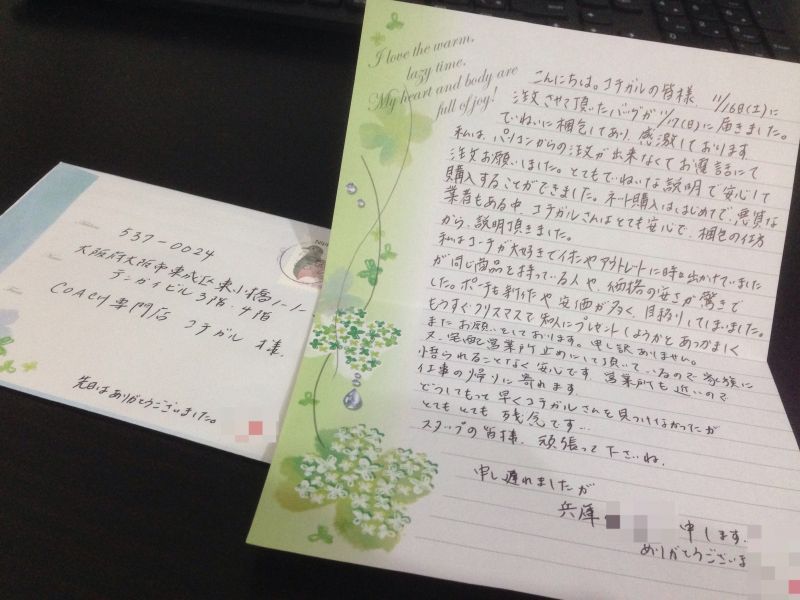 537-0024
大阪府大阪市東成区東小橋1-1-1
テンガイビル3階、4階
COACH専門店 コテガル 様
先日はありがとうございました。
I love the warm,
lazy time,
My heart and body are
full of joy!
こんにちは。コテガルの皆様 11/16日(土)に
注文させて頂いたバッグが 11/17(日)に届きました。
ていねいに梱包してあり、感激しております
私は、パソコンからの注文が出来なくてお電話にて
注文お願いしました。とてもていねいな説明で安心して
購入することができました。ネット購入ははじめてで、悪質な
業者もある中、コテガルさんはとても安心で、梱包の仕方
から、説明頂きました。
私はコーチが大好きでイオンやアウトレートに時々出かけていました
が同じ商品を持っている人や、価格の安さが驚きで
した。ポーチも
や安価が多く、目移りしてしまいました。
もうすぐクリスマスで知人にプレゼントしようかとあつかましく
またお願いをしております。申し訳ありません。
又、宅配営業所止めにして頂いているので家族に
悟られることなく安心です。営業所も近いので
仕事の帰りに寄れます。
どうしてもって早くコテガルさんを見つけなかったが
とてもとても残念です…
スタップの皆様、頑張って下さいね。
申し遅れましたが
兵庫
申します。
ありがとうございま